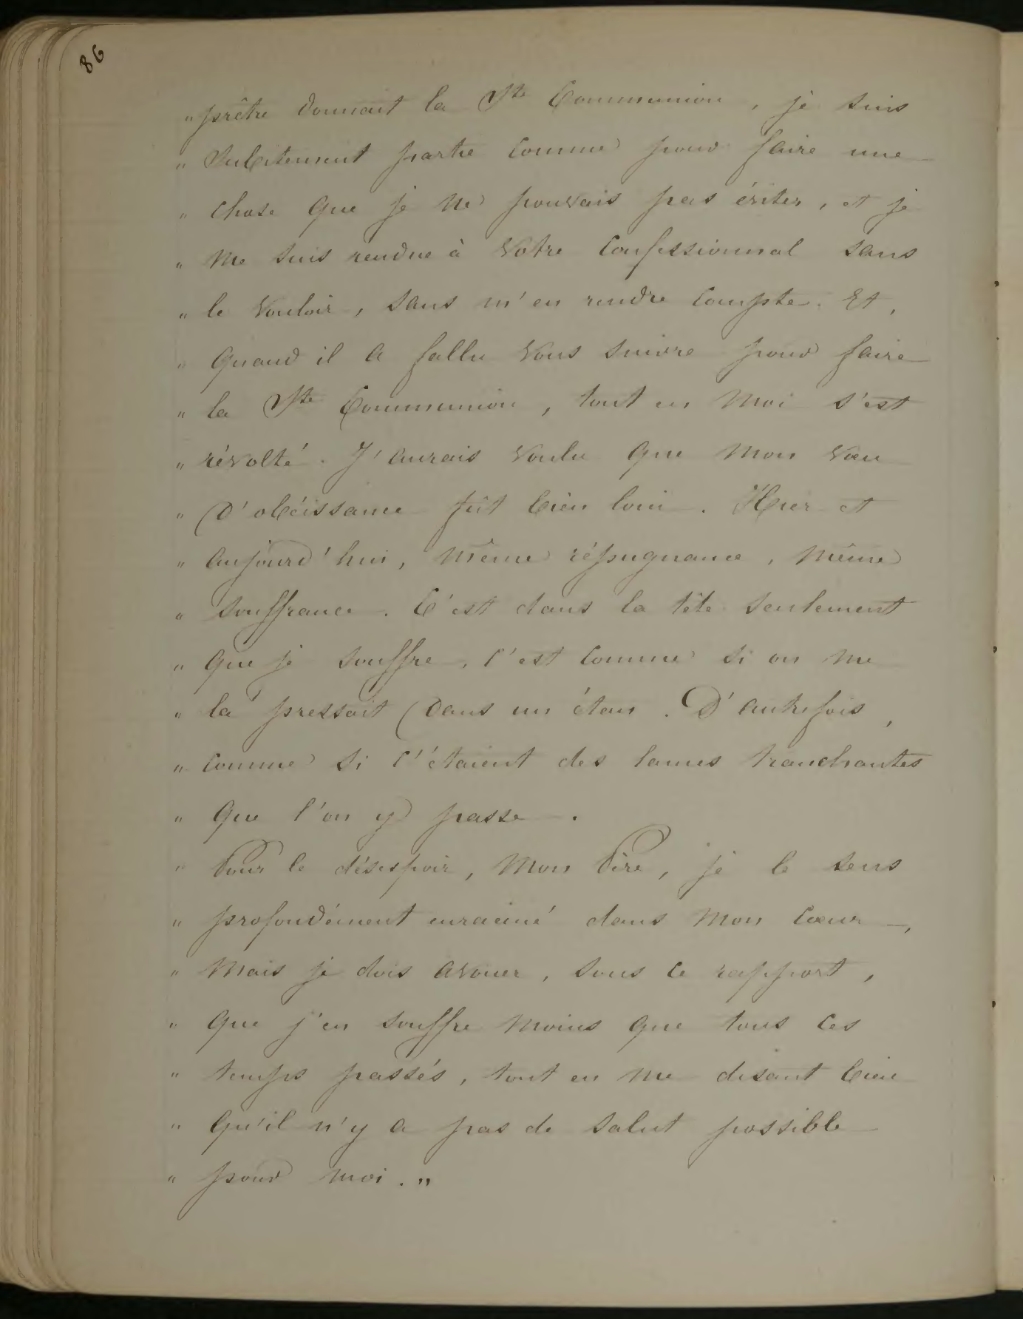 86
" prêtre donnait la Ste Communion, je suis
" Subitement partie comme pour faire une
" chose que je ne pouvais pas éviter, et je
" me suis rendue à votre Confessionnal sans
" le vouloir, sans m'en rendre compte. Et,
" quand il a fallu vous suivre pour faire
" la Ste Communion, tout en moi s'est
" révolté. J'aurais voulu que mon vœu
" d'obéissance fût bien loin. Hier et
" aujourd'hui, même répugnance, même
" souffrance. C'est dans la tête seulement
" que je souffre, c'est comme si on me
" la pressait dans un étau. D'autrefois,
" comme si c'étaient des lames tranchantes
" que l'on y passe.
" Pour le désespoir, Mon Père, je le sens
" profondément enraciné dans mon cœur,
" mais je dois avouer, sous ce rapport,
" que j'en souffre moins que tous ces
" temps passés, tout en me disant bien
" qu'il n'y a pas de salut possible
" pour moi. "